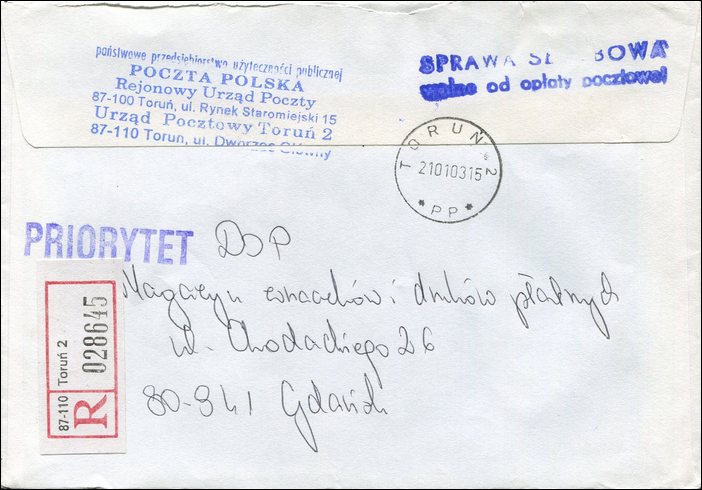 państwowe przedsiębiorstwo użyteczności publicznej
POCZTA POLSKA
Rejonowy Urząd Poczty
87-100 Toruń, ul. Rynek Staromiejski 15
Urząd Pocztowy Toruń 2
87-110 Toruń, ul. Dworzec Główny
SPRAWA SŁ BOWA
wolne od opłaty pocztowej
TORUŃ 2
21010315
* PP *
PRIORYTET
DSP
Magazyn znaczków i druków płatnych
ul. Chodackiego 26
80-941 Gdańsk
R
87-110 Toruń 2
028645